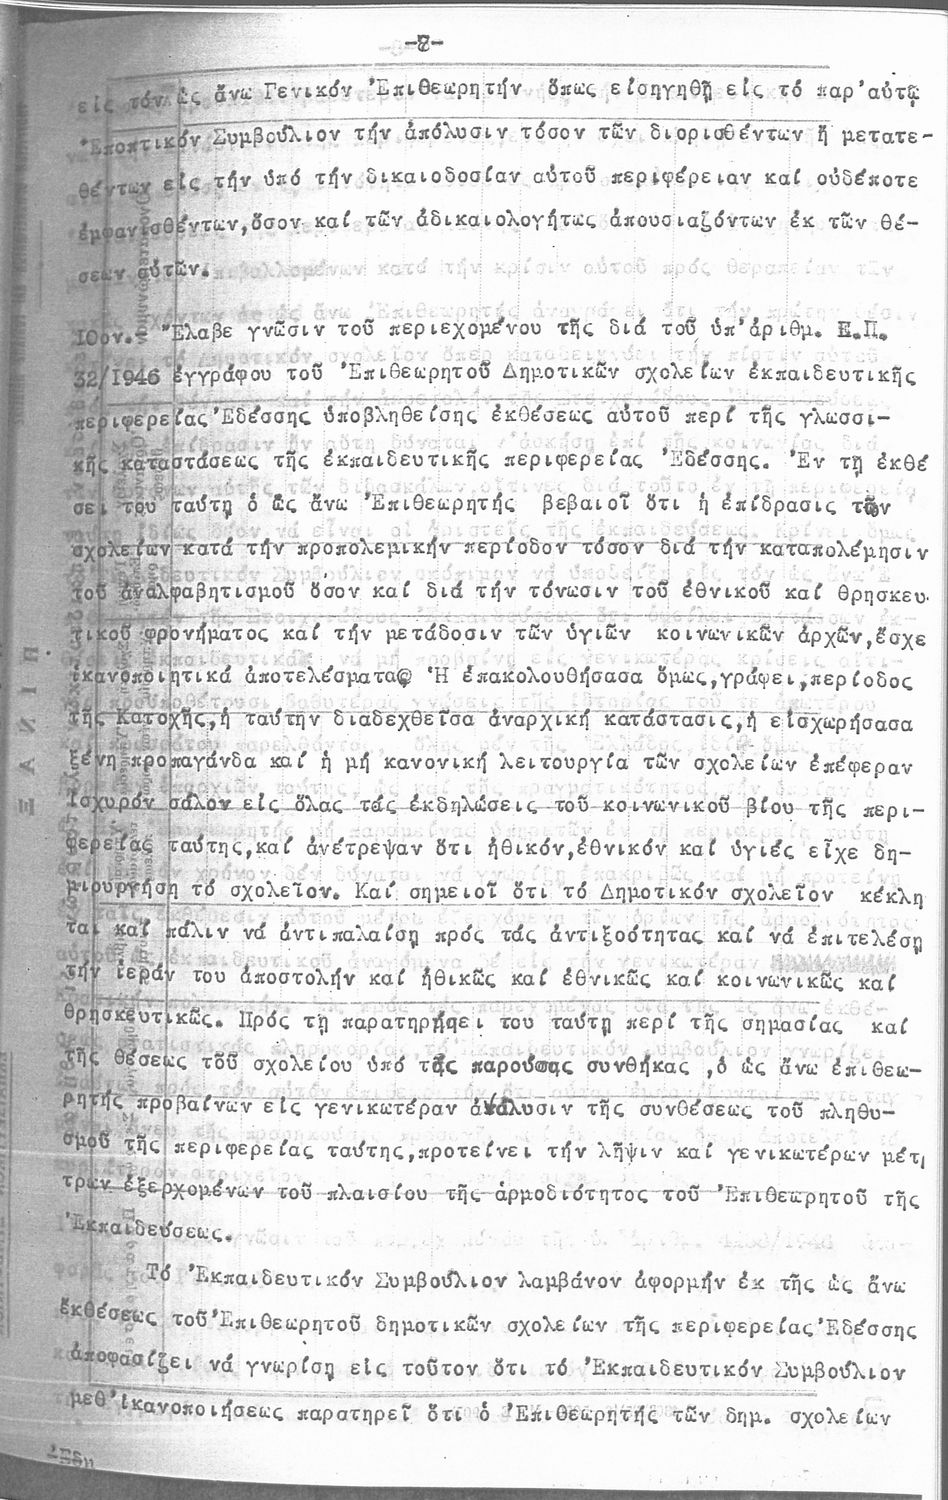 -8-
εἰς τόν ὡς ἄνω Γενικόν Ἐπιθεωρητήν ὅπως εἰσηγηθῇ εἰς τό παρ'αὐτῷ
Ἐποπτικόν Συμβούλιον τήν ἀπόλυσιν τόσον τῶν διορισθέντων ἤ μετατε-
θέντων εἰς τήν ὑπό τήν δικαιοδοσίαν αὐτοῦ περιφέρειαν καί οὐδέποτε
ἐμφανισθέντων,ὅσον καί τῶν ἀδικαιολογήτως ἀπουσιαζόντων ἐκ τῶν θέ-
σεων αὐτῶν.
10ον.- Ἔλαβε γνῶσιν τοῦ περιεχομένου τῆς διά τοῦ ὑπ'ἀριθμ. Ε.Π.
32/1946 ἐγγράφου τοῦ Ἐπιθεωρητοῦ Δημοτικῶν σχολείων ἐκπαιδευτικῆς
περιφερείας Ἐδέσσης ὑποβληθείσης ἐκθέσεως αὐτοῦ περί τῆς γλωσσι-
κῆς καταστάσεως τῆς ἐκπαιδευτικῆς περιφερείας Ἐδέσσης. Ἐν τῇ ἐκθέ
σει του ταύτῃ ὁ ὡς ἄνω Ἐπιθεωρητής βεβαιοῖ ὅτι ἡ ἐπίδρασις τῶν
σχολείων κατά τήν προπολεμικήν περίοδον τόσον διά τήν καταπολέμησιν
τοῦ ἀναλφαβητισμοῦ ὅσον καί διά τήν τόνωσιν τοῦ ἐθνικοῦ καί θρησκευ-
τικοῦ φρονήματος καί τήν μετάδοσιν τῶν ὑγιῶν κοινωνικῶν ἀρχῶν,ἔσχε
ἱκανοποιητικά ἀποτελέσματα. Ἡ ἐπακολουθήσασα ὅμως,γράφει,περίοδος
τῆς Κατοχῆς,ἡ ταύτην διαδεχθεῖσα ἀναρχική κατάστασις,ἡ εἰσχωρήσασα
ξένη προπαγάνδα καί ἡ μή κανονική λειτουργία τῶν σχολείων ἐπέφεραν
ἰσχυρόν σάλον εἰς ὅλας τάς ἐκδηλώσεις τοῦ κοινωνικοῦ βίου τῆς περι-
φερείας ταύτης,καί ἀνέτρεψαν ὅτι ἠθικόν,ἐθνικόν καί ὑγιές εἶχε δη-
μιουργήσῃ τό σχολεῖον. Καί σημειοῖ ὅτι τό Δημοτικόν σχολεῖον κέκλη
ται καί πάλιν νά ἀντιπαλαίσῃ πρός τάς ἀντιξοότητας καί νά ἐπιτελέσῃ
τήν ἱεράν του ἀποστολήν καί ἠθικῶς καί ἐθνικῶς καί κοινωνικῶς καί
θρησκευτικῶς. Πρός τῇ παρατηρήσει του ταύτῃ περί τῆς σημασίας καί
τῆς θέσεως τοῦ σχολείου ὑπό τάς παρούσας συνθήκας ,ὁ ὡς ἄνω ἐπιθεω-
ρητής προβαίνων εἰς γενικωτέραν ἀνάλυσιν τῆς συνθέσεως τοῦ πληθυ-
σμοῦ τῆς περιφερείας ταύτης,προτείνει τήν λῆψιν καί γενικωτέρων μέτ
τρων ἐξερχομένων τοῦ πλαισίου τῆς ἁρμοδιότητος τοῦ Ἐπιθεωρητοῦ τῆς
Ἐκπαιδεύσεως.
Τό Ἐκπαιδευτικόν Συμβούλιον λαμβάνον ἀφορμήν ἐκ τῆς ὡς ἄνω
ἐκθέσεως τοῦ Ἐπιθεωρητοῦ δημοτικῶν σχολείων τῆς περιφερείας Ἐδέσσης
ἀποφασίζει νά γνωρίσῃ εἰς τοῦτον ὅτι τό Ἐκπαιδευτικόν Συμβούλιον
μεθ'ἱκανοποιήσεως παρατηρεῖ ὅτι ὁ Ἐπιθεωρητής τῶν δημ. σχολείων